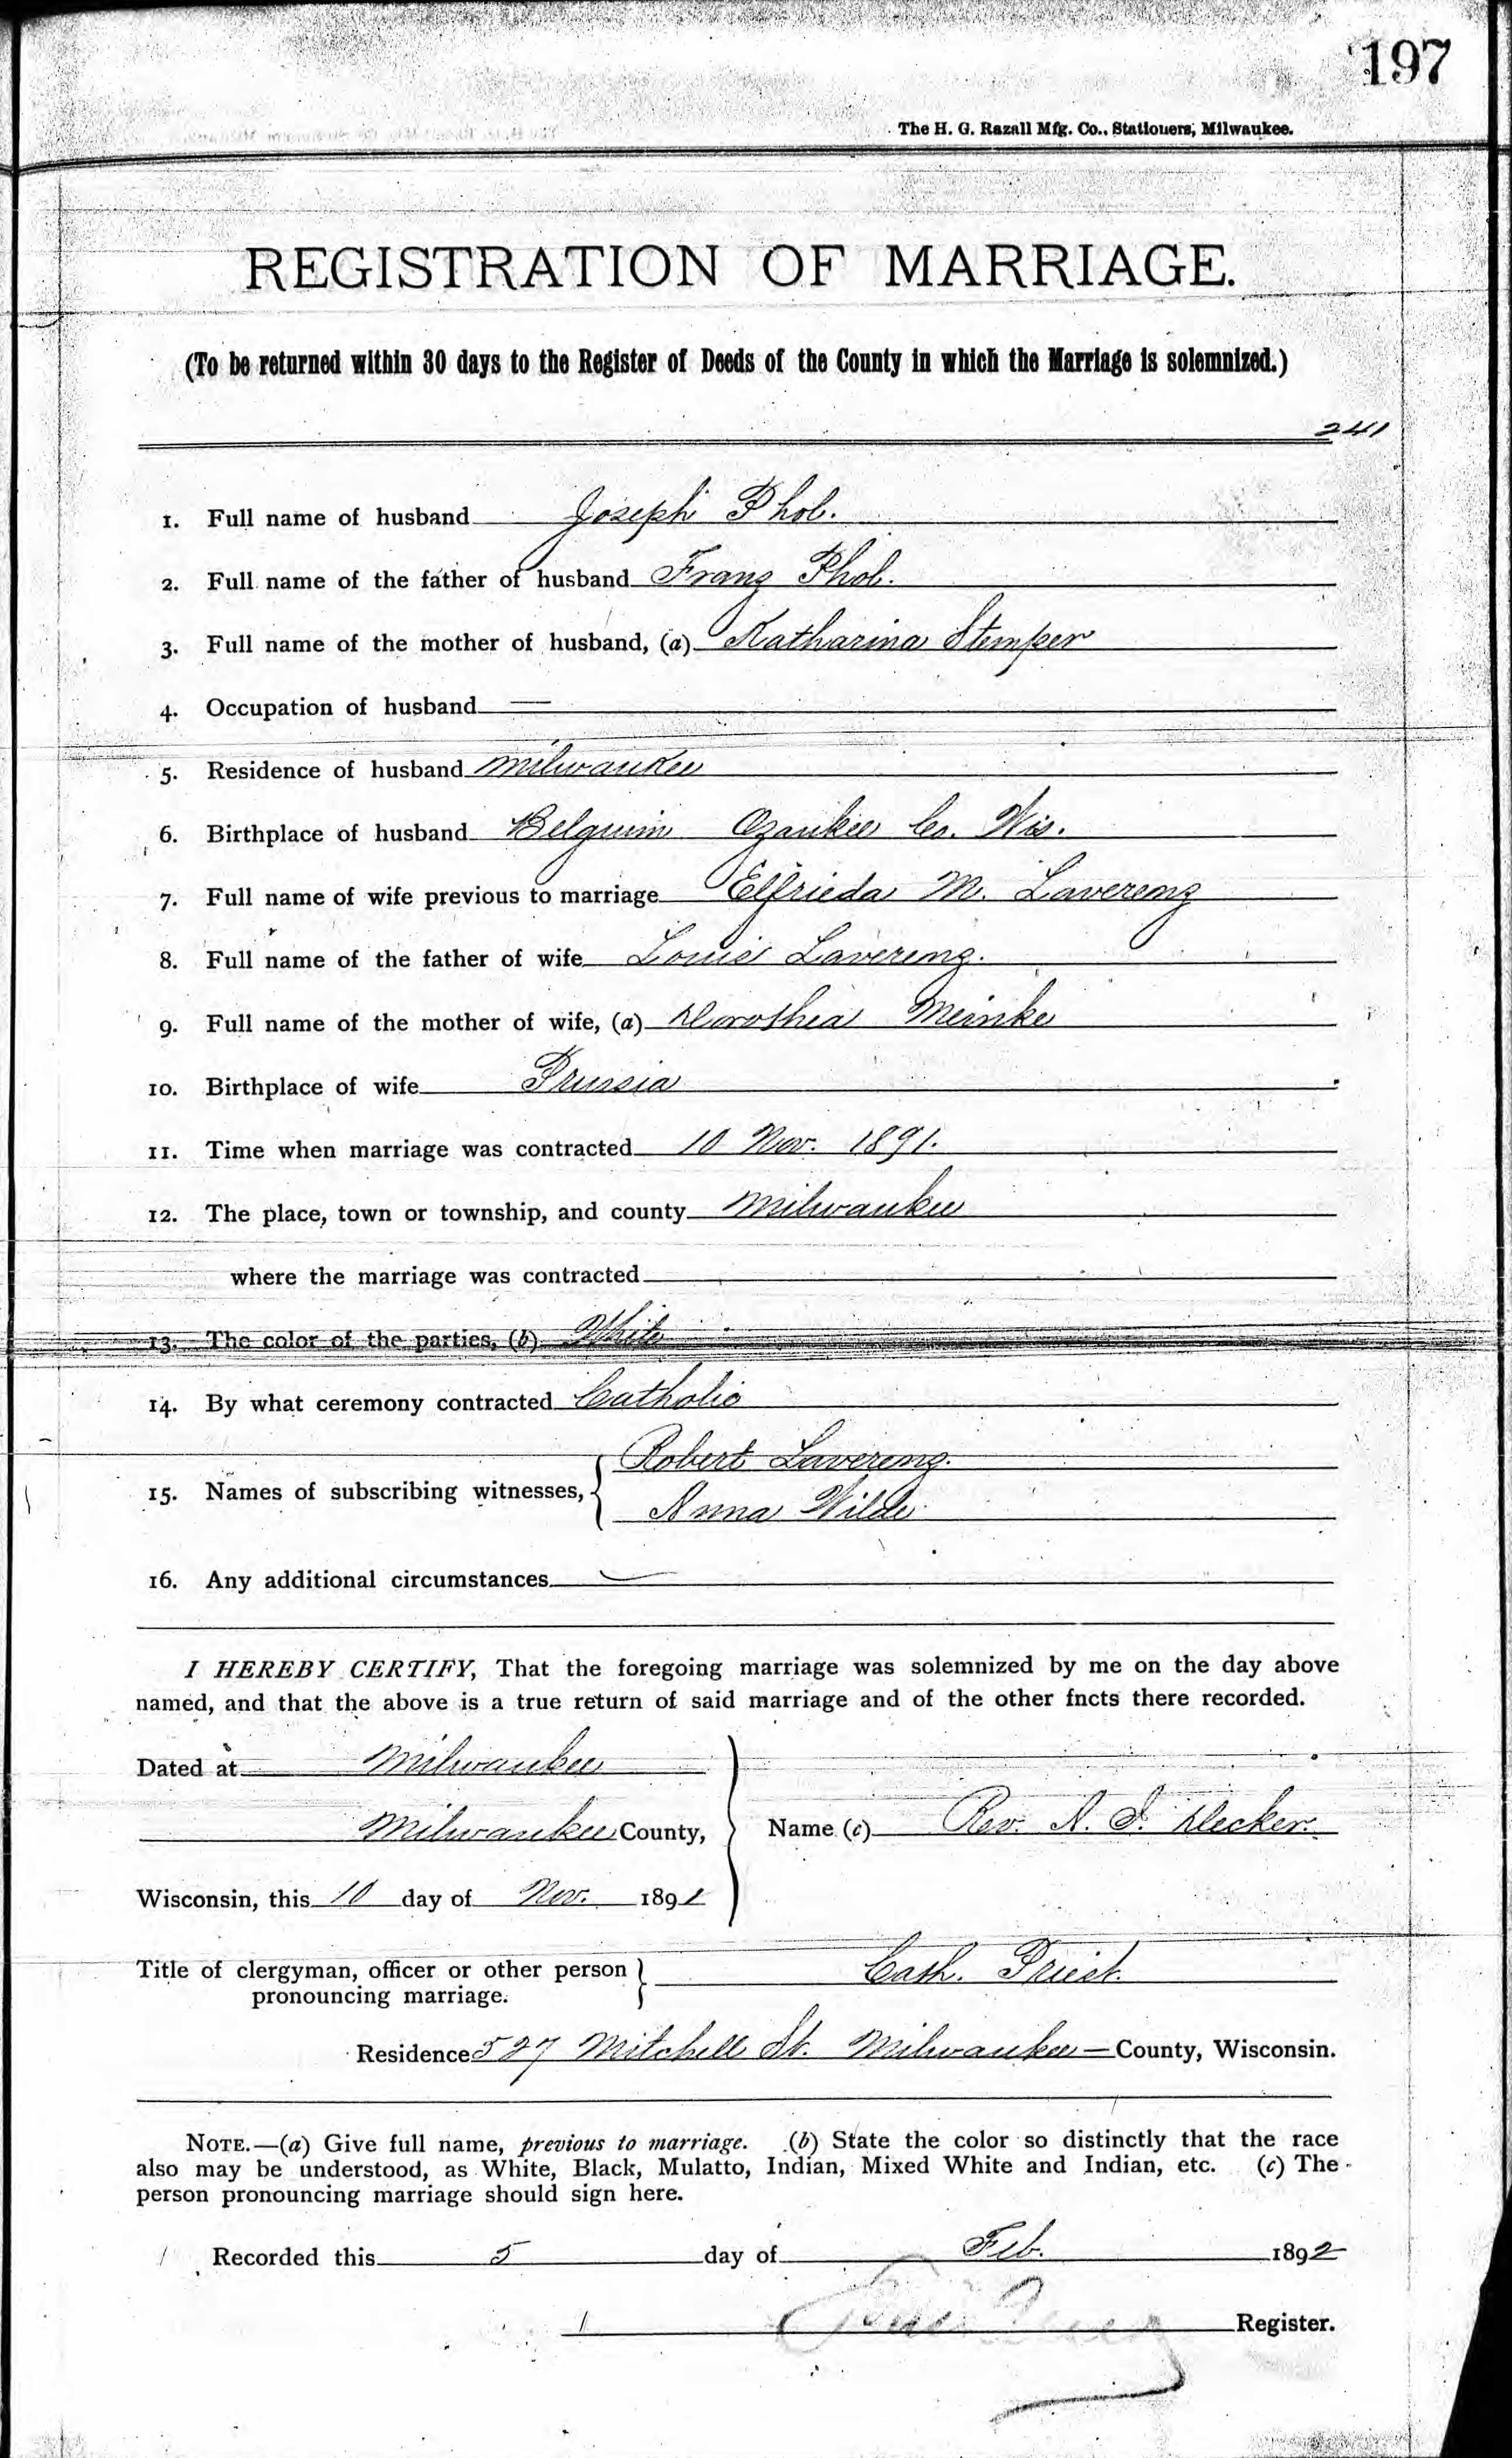 197
The H. G. Razall Mfg. Co., Stationers, Milwaukee.
REGISTRATION OF MARRIAGE.
(To be returned within 30 days to the Register of Deeds of the County in which the Marriage is solemnized.)
241
1. Full name of husband Joseph Phol.
2. Full name of the father of husband Franz Phol.
3. Full name of the mother of husband, (a) Katharina Stemper
4. Occupation of husband —
5. Residence of husband Milwaukee
6. Birthplace of husband Belguim Ozaukee Co. Wis.
7. Full name of wife previous to marriage Elfrieda M. Laverenz
8. Full name of the father of wife Louis Laverenz.
9. Full name of the mother of wife, (a) Dorothea Meinke
10. Birthplace of wife Prussia
11. Time when marriage was contracted 10 Nov. 1891.
12. The place, town or township, and county Milwaukee
where the marriage was contracted
13. The color of the parties, (b) White
14. By what ceremony contracted Catholic
Robert Laverenz.
15. Names of subscribing witnesses,
Anna Wilde
16. Any additional circumstances —
I HEREBY CERTIFY, That the foregoing marriage was solemnized by me on the day above
named, and that the above is a true return of said marriage and of the other fncts there recorded.
Dated at Milwaukee
Milwaukee County, Name (c) Rev. N. J. Decker.
Wisconsin, this 10 day of Nov. 1891
Title of clergyman, officer or other person Cath. Priest.
pronouncing marriage.
Residence 527 Mitchell St. Milwaukee — County, Wisconsin.
NOTE.—(a) Give full name, previous to marriage. (b) State the color so distinctly that the race
also may be understood, as White, Black, Mulatto, Indian, Mixed White and Indian, etc. (c) The
person pronouncing marriage should sign here.
Recorded this 5 day of Feb. 1892
Register.